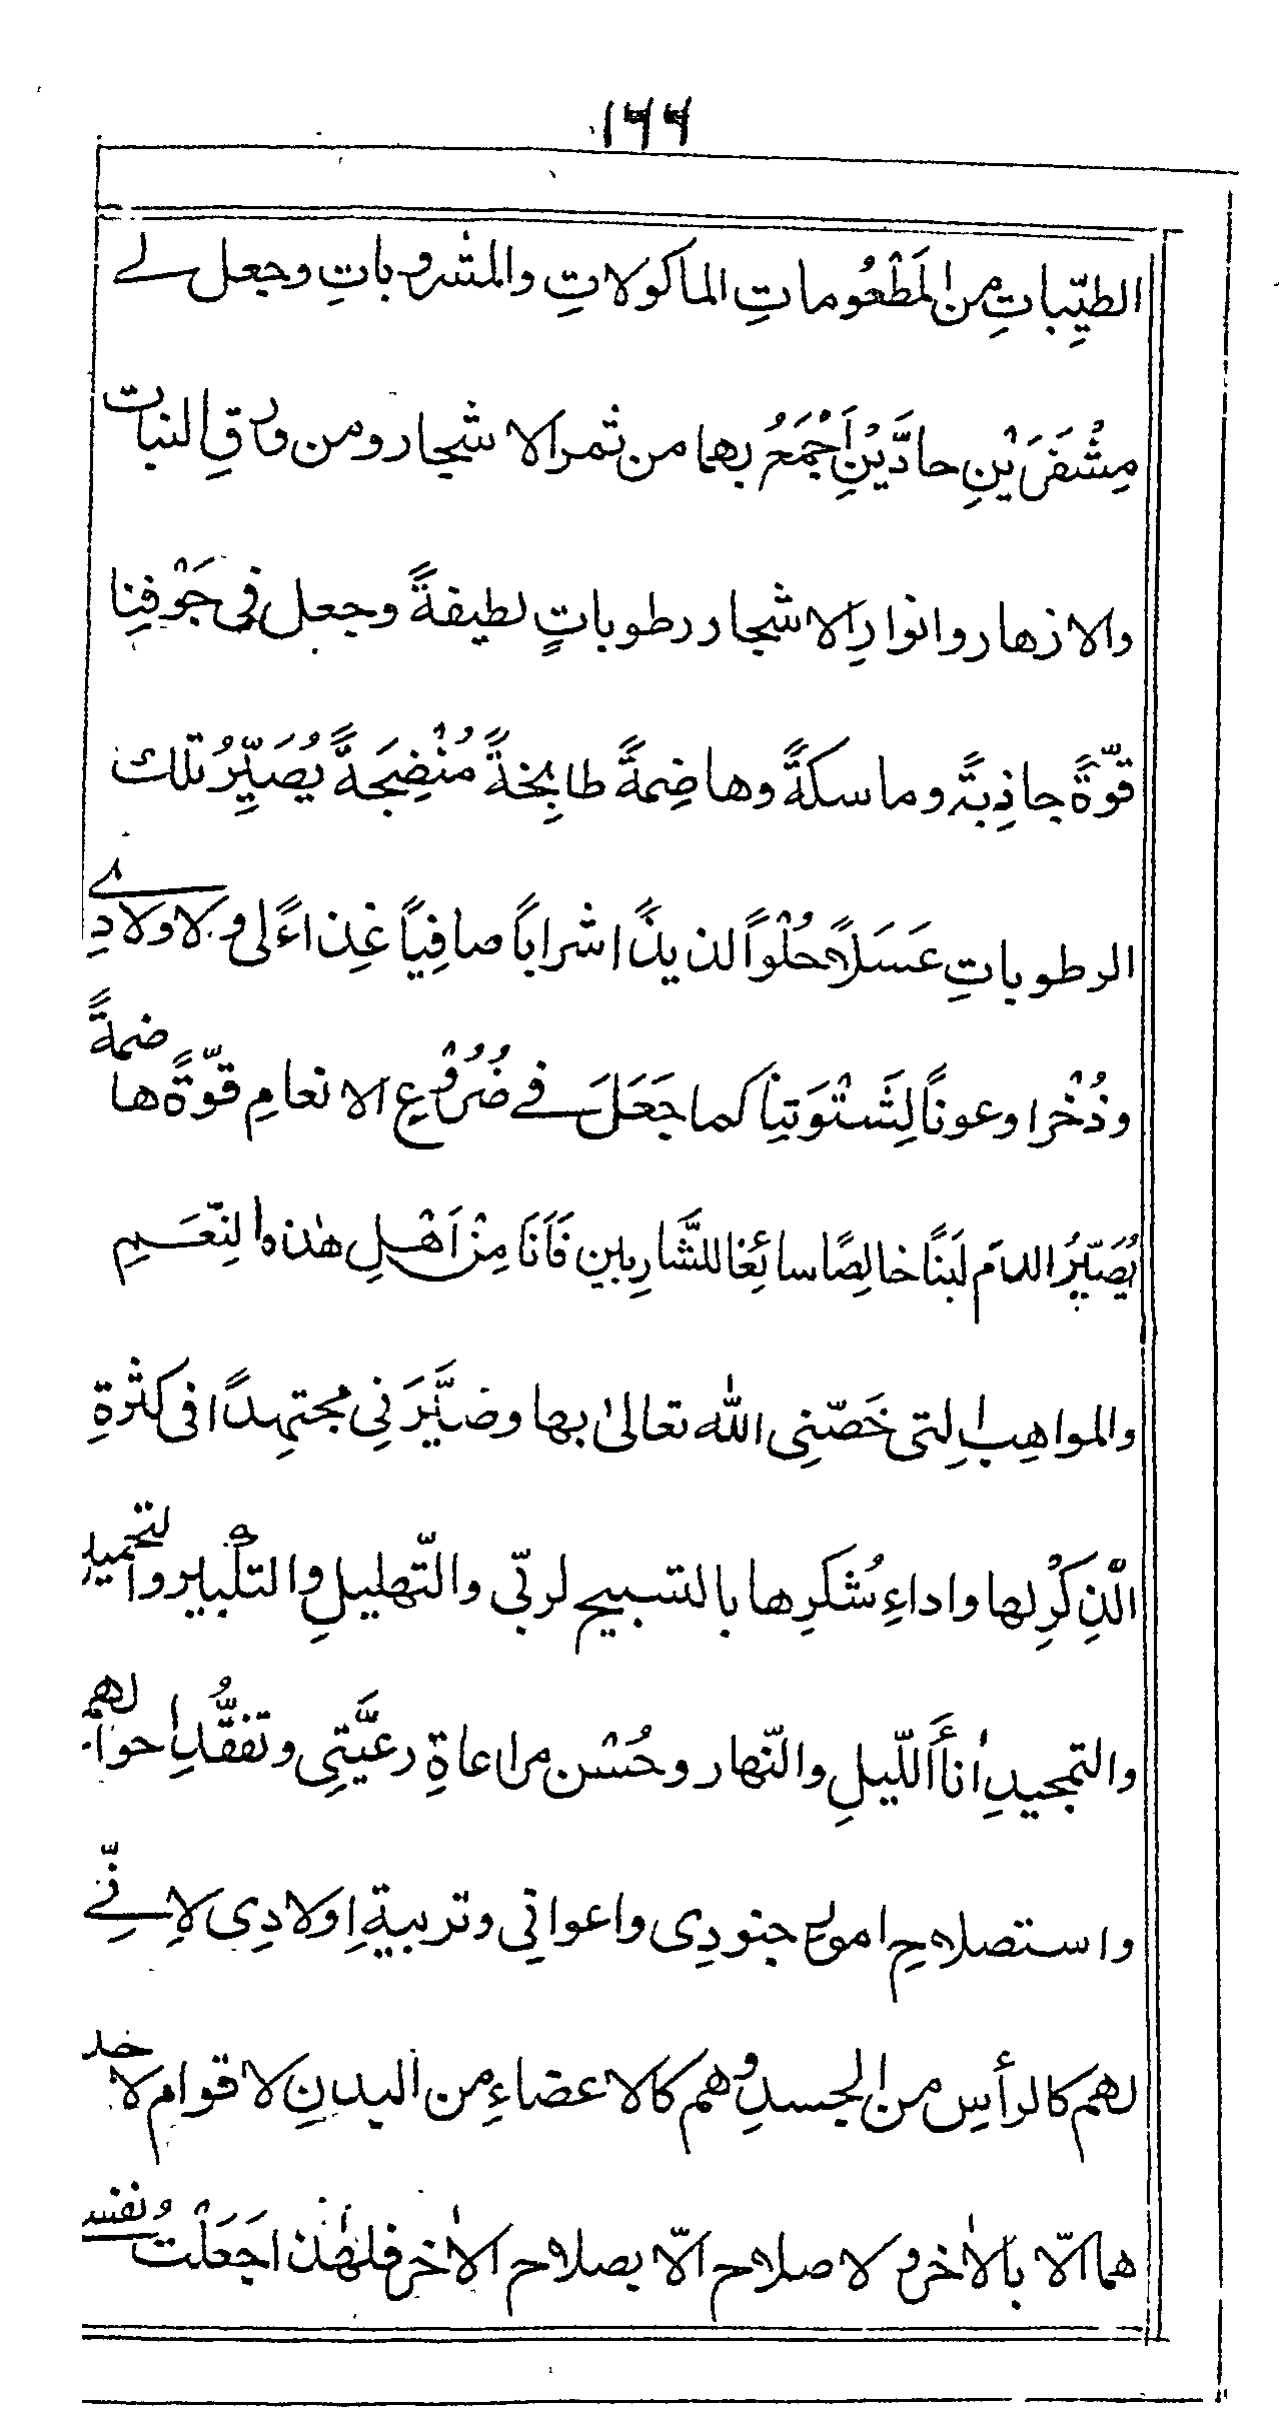 ۱۴۴
الطيّباتِ من المَطْعُوماتِ الماكولاتِ والمشروباتِ وجعل لے
مِشْفَرَيْنِ حادَّيْنِ اَجْمَعُ بهما من ثمر الاشجار ومن ورقِ النبات
والازهار وانوارِ الاشجار رطوباتٍ لطيفةً وجعل فى جَوْفِنا
قوّةً جاذِبةً وماسكةً وهاضِمةً طابِخةً مُنْضِجَةً يُصَيِّرُ تلك
الرطوباتِ عَسَلاً حُلْواً لذيذًا شراباً صافِياً غِذاءً لى ولاولادِے
وذُخْرا وعوناً لِشَتْوَتِنا كما جَعَلَ فے ضُرُوْعِ الانعامِ قوّةً هاضمةً
يُصَيِّرُ الدام لَبَنًا خالِصًا سائِغا للشَّارِبين فَاَنَا مِنْ اَهْلِ هٰذه النِّعَمِ
والمواهِبِ التى خَصّنِى الله تعالىٰ بها وضيَّرَنِى مجتهِدًا فى كثرةِ
الّذِكْرِ لها واداءِ شُكرِها بالتسبيح لربّى والتّهليلِ والتكبير والتحميد
والتمجيدِ اٰنأَ اللّيلِ والنّهار وحُسْن مراعاةِ رعيَّتِى وتفقُّدِ احوالهم
واستصلاحِ امور جنودِى واعوانِى وتربيةِ اولادِى لاِنِّے
لهم كالرأسِ من الجسدِ وهم كالاعضاءِ من البدنِ لاقوام لاحد
هما الّا بالاٰخر ولا صلاح الّا بصلاح الاٰخر فلهٰذا جَعَلْتُ نفسے